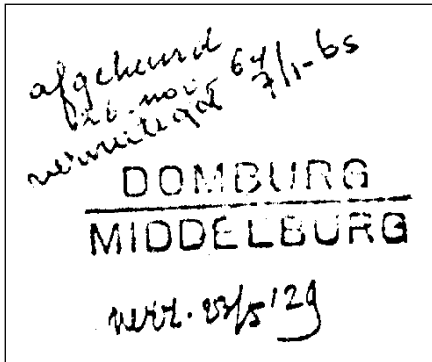 afgekeurd
26 nov 64
vernietigd 7/1-65
DOMBURG
MIDDELBURG
verz. 23/5 '29